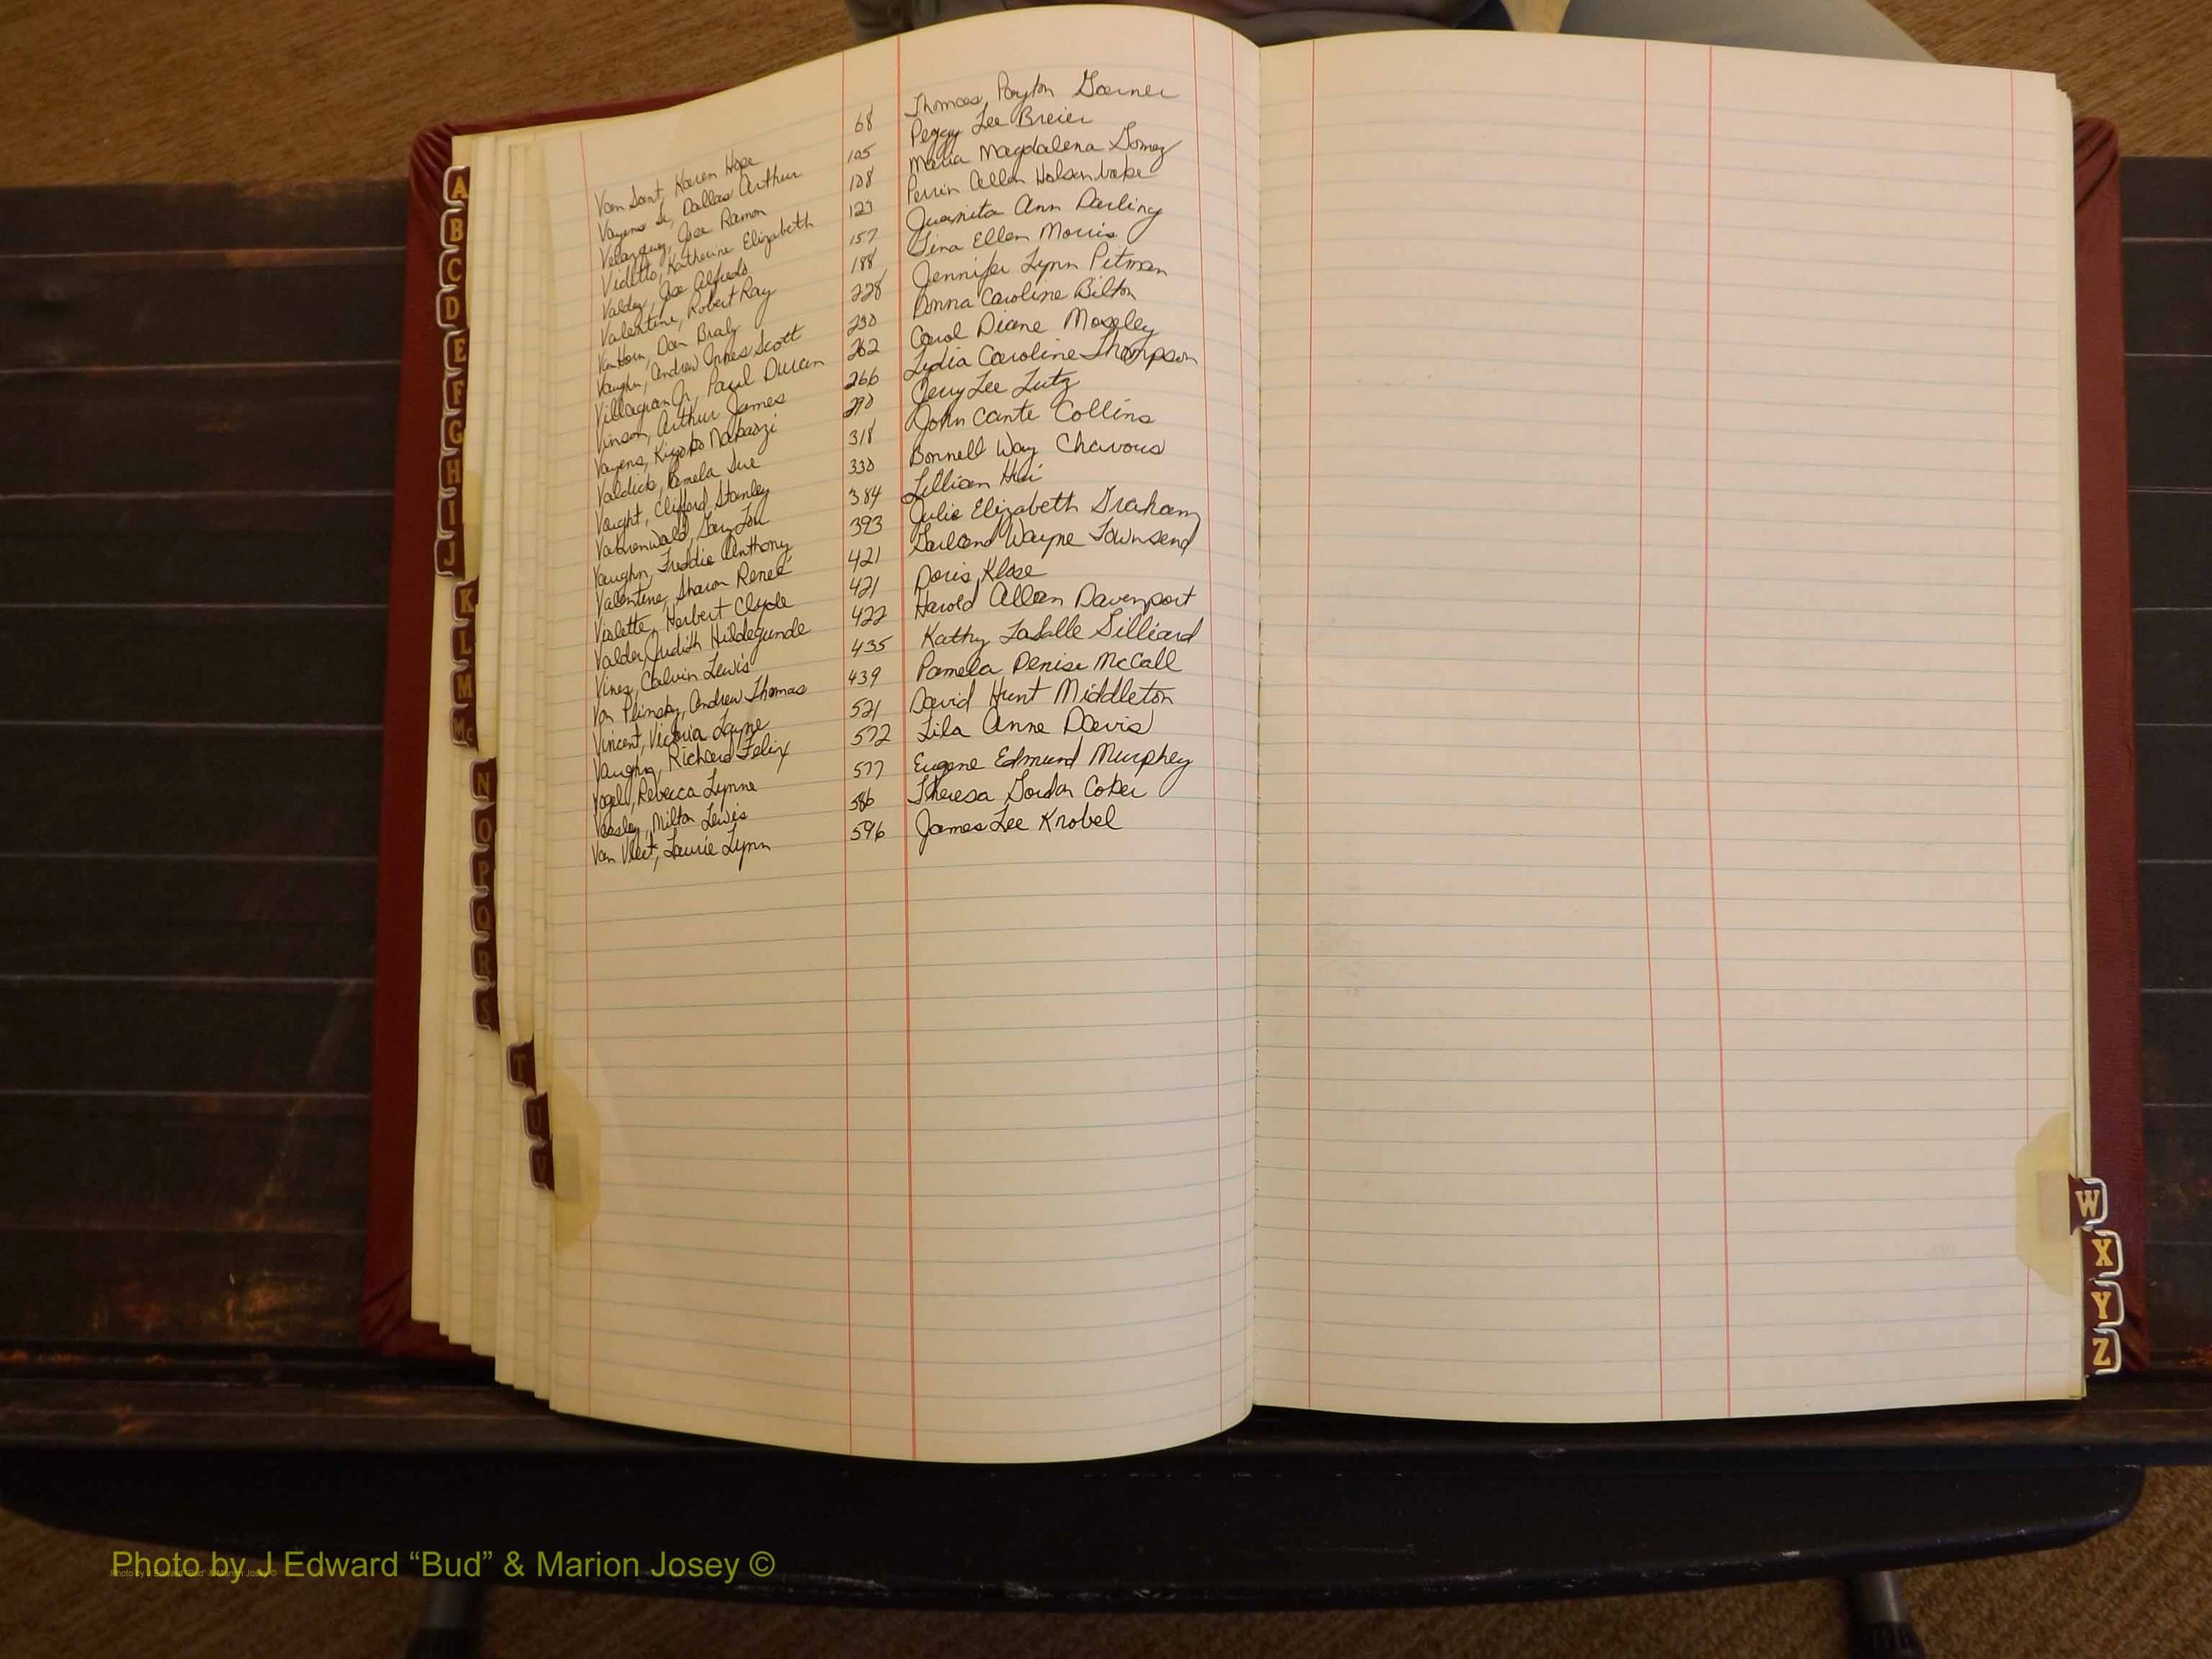 Van Sant, Karen Hope 68 Thomas Payton Garner
Vayens Sr, Dallas Arthur 105 Peggy Lee Breier
Velazquez, Jose Ramon 108 Maria Magdalena Gomez
Videtto, Katherine Elizabeth 123 Perrin Allen Holsenbake
Valdez, Jose Alfredo 157 Juanita Ann Darling
Valentine, Robert Ray 188 Gina Ellen Morris
Van Horn, Dan Braly 228 Jennifer Lynn Pitman
Vaughn, Andrew Innes Scott 230 Donna Caroline Bilton
Villagran Jr, Paul Duran 262 Carol Diane Moseley
Vinson, Arthur James 266 Lydia Caroline Thompson
Vayens, Kiyoko 290 Jerry Lee Lutz
Valdick, Pamela Sue 318 John Cante Collins
Vaught, Clifford Stanley 330 Bonnell Way Chavous
Gary Lou 384 Lillian Hui
Vaughn, Freddie Anthony 393 Julie Elizabeth Graham
Valentine, Sharon Renee' 421 Garland Wayne Townsend
Violette, Herbert Clyde 421 Doris Klose
Valder, Judith Hildegunde 422 Harold Allan Davenport
Vines, Calvin Lewis 435 Kathy LaSalle Gilliard
Von Plinsky, Andrew Thomas 439 Pamela Denise McCall
Vincent, Victoria Layne 521 David Hunt Middleton
Vaughn, Richard Felix 572 Lila Anne Davis
Vogel, Rebecca Lynne 577 Eugene Edmund Murphey
Veasley, Milton Lewis 586 Theresa Gordon Coker
Van Vleet, Laurie Lynn 596 James Lee Knobel
A
B
C
D
E
F
G
H
I
J
K
L
M
Mc
N
O
P
Q
R
S
T
U
V
W
X
Y
Z
Photo by J Edward “Bud” & Marion Josey ©
Photo by J Edward "Bud" & Marion Josey ©